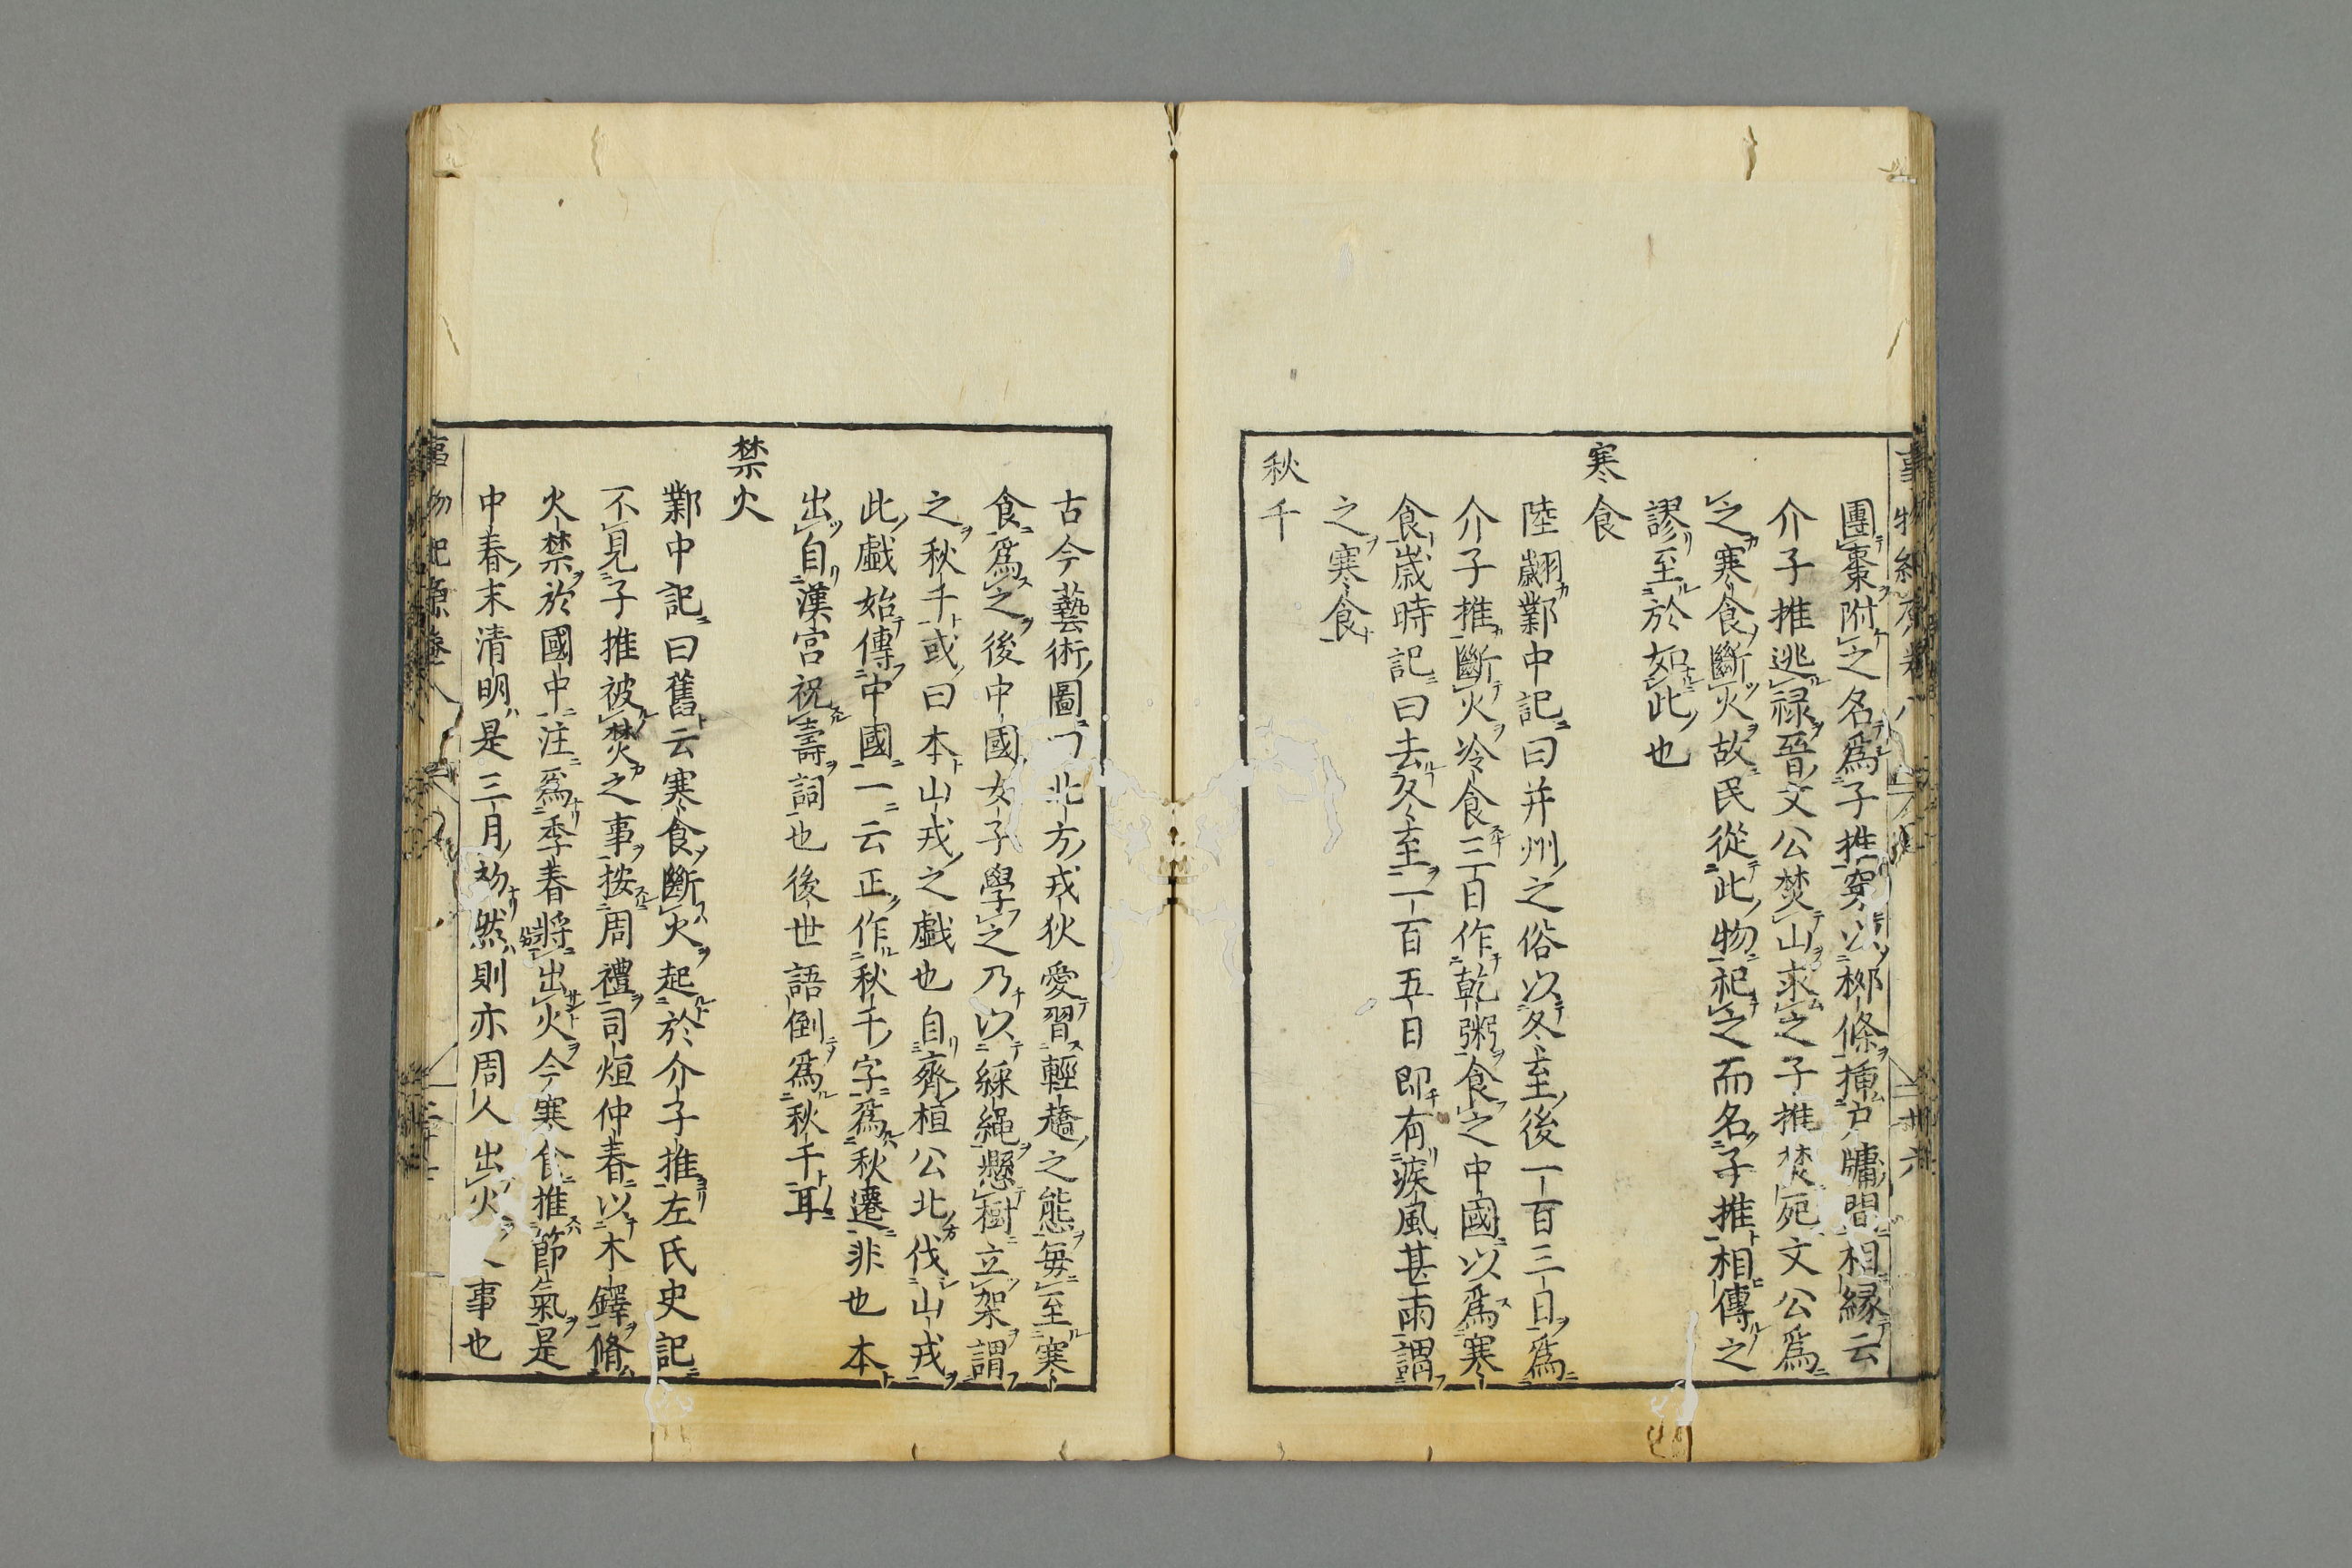 團棗附之名爲子推穿以桞條揷戸牗間相縁云
介子推逃禄晉文公焚山求之子推焚死文公爲
之寒食斷火故民從此物祀之而名子推相傳之
謬至於如此也
寒食
陸翽鄴中記曰并州之俗以冬至後一百三日爲
介子推斷火冷食三日作乾粥食之中國以爲寒
食歳時記曰去冬至一百五日即有疾風甚雨謂
之寒食
秋千
古今藝術圖曰北方戎狄愛習輕趫之態每至寒
食爲之後中國女子學之乃以綵繩懸樹立架謂
之秋千或曰本山戎之戲也自齊桓公北伐山戎
此戲始傳中國一云正作秋千字爲秋遷非也本
出自漢宮祝壽詞也後世語倒爲秋千耳
禁火
鄴中記曰舊云寒食斷火起於介子推左氏史記
不見子推被焚之事按周禮司烜仲春以木鐸脩
火禁於國中注爲季春將出火今寒食推節氣是
中春末清明是三月初然則亦周人出火 事也
事物紀原卷八